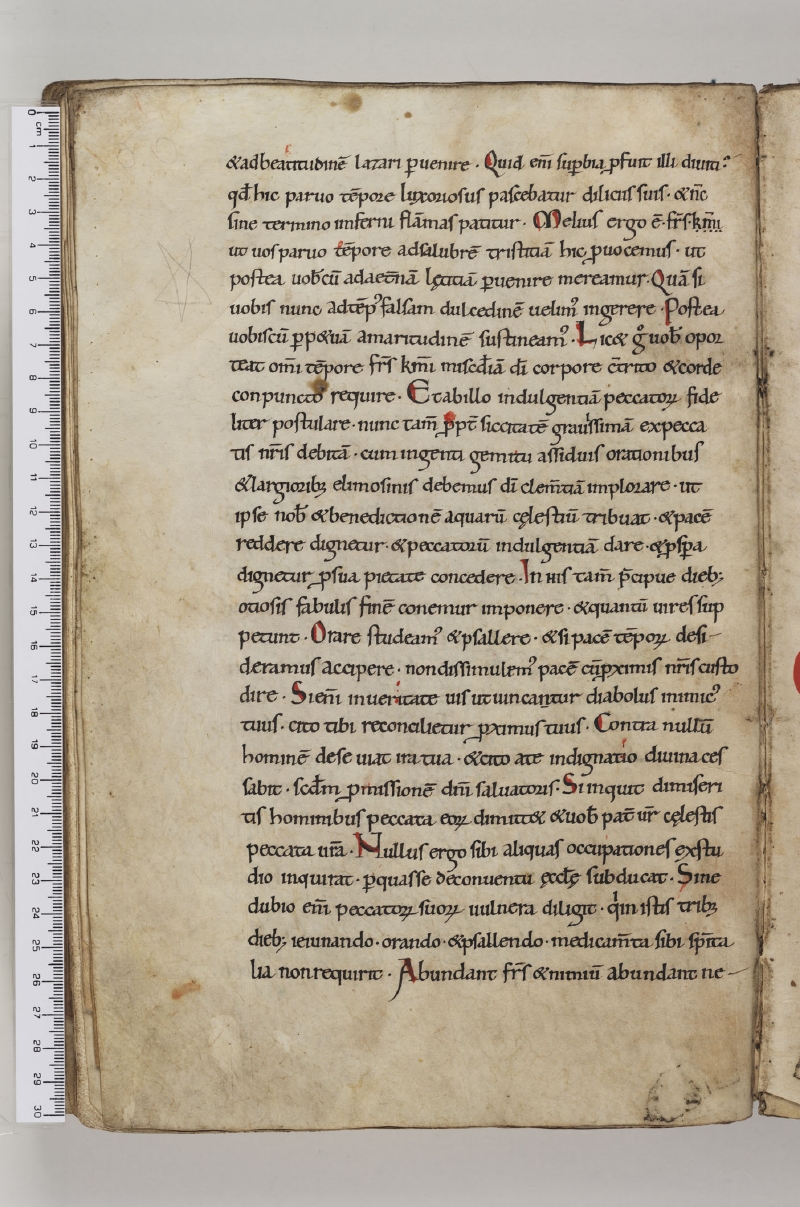 &ad beatitudinē lazari ꝑuenire · Quid eni̅ sup̱bia ꝓfuit illi diuiti?
qd̅ hic paruo tēpore luxoriosus pascebatur diliciis suis · & nc̅
sine termino inferni flāmas patitur · Melius ergo ē · fr̅s · km̅i
ut uos paruo tēpore ad salubrē tristitiā hic ꝓuocemus · ut
postea uob̅cū ad aet̅nā lętitiā ꝑuenire mereamur · Quā si
uobis nunc ad tēp᾿ falsam dulcedinē uelim᾿ ingerere · Postea
uobiscū ꝑp&uā amaritudinē sustineam᾿ · Lic& gͦ uob̅ opor
teat omi̅ tēpore fr̅s km̅i misc̅diā di̅ corpore c̅trito & corde
conpuncto require · Et ab illo indulgentiā peccatoꝝ fide
liter postulare · nunc tam̅ ꝓpt̅ siccitatē grauissimā ex pecca
tis nr̅is debitā · cum ingenti gemitu assiduis orationibus
& largioribꝫ elimosinis debemus di̅ clem̅tiā implorare · ut
ipse nob̅ & benedictionē aquarū cęlestiū tribuat · & pacē
reddere dignetur · & peccatorū indulgentiā dare · & ꝓsꝑa
dignetur ꝓ sua pietate concedere · In his tam̅ p̅cipue diebꝫ
otiosis fabulis finē conemur imponere · & quantū uires sup
petunt · Orare studeam᾿ & psallere · & si pacē tēpoꝝ desi–
deramus accipere · non dissimulem᾿ pacē cū ꝓximis nr̅is custo
dire · Si eni̅ in ueritate uis ut uincantur diabolus inimic᾿
tuus · cito tibi reconcilietur ꝓximus tuus · Contra nullū
hominē deseuiat ira tua · & cito a te indignatio diuina ces
sabit · scd̅m ꝓmissionē dn̅i saluatoris · Si inquit dimiseri
tis hominibus peccata eoꝝ dimitt& & uob̅ pat̅ ur̅ cęlestis
peccata ur̅a · Nullus ergo sibi aliquas occupationes ex stu
dio inquirat · ꝑ quas se de conuentu ęccl̅ę subducat · Sine
dubio eni̅ peccatoꝝ suoꝝ uulnera diligit · qͥ in istis tribꝫ
diebꝫ ieiunando · orando · & psallendo · medicam̅ta sibi sp̅ita
lia non requirit · Abundant fr̅s & nimiū abundant ne–